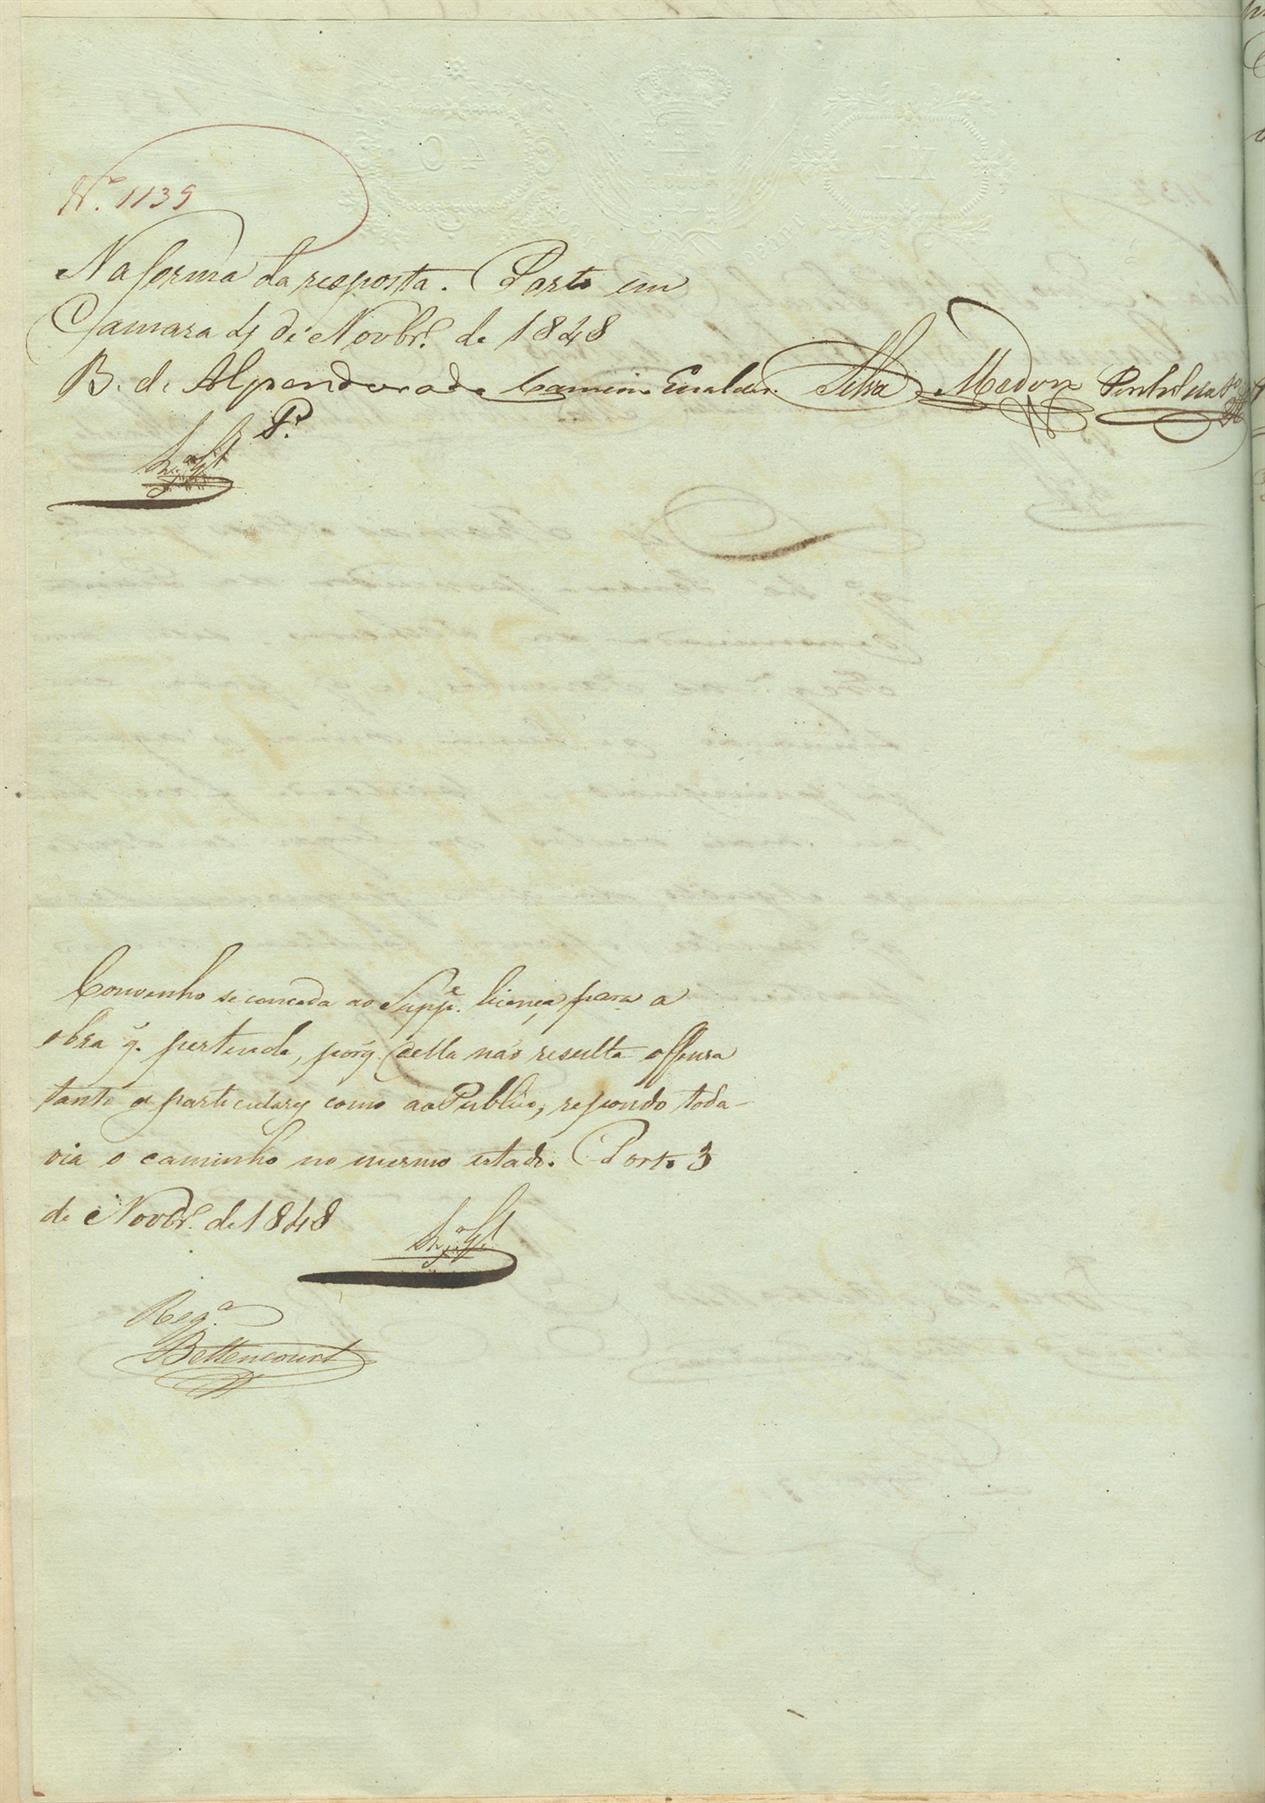 Nº. 1139
Na forma da resposta. Porto em
Camara 4 de Novbrº. de 1848
B. de Alpendurada Silva
P.
Convenho se conceda ao Suppe. licença para a
obra q. pertende, porq. della não resulta offensa
tanto a particulares como ao Publico, repondo toda-
via o caminho no mesmo estado. Porto 3
de Novbrº. de 1848
Bettencourt